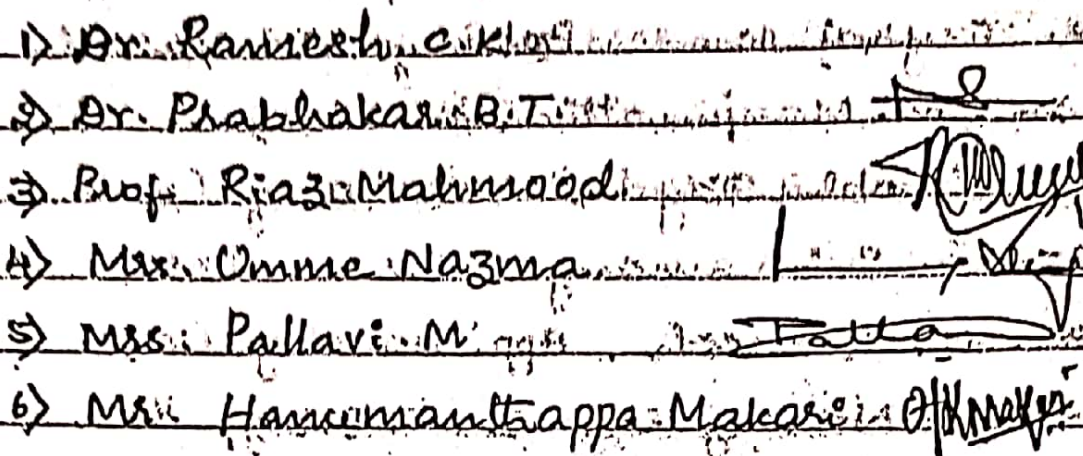 1) Dr. Ramesh C.K
2) Dr. Prabhakar B.T
3) Prof. Riaz Mahmood
4) Mrs. Omme Nazma
5) Mss. Pallavi M
6) Mr. Hanumanthappa Makari